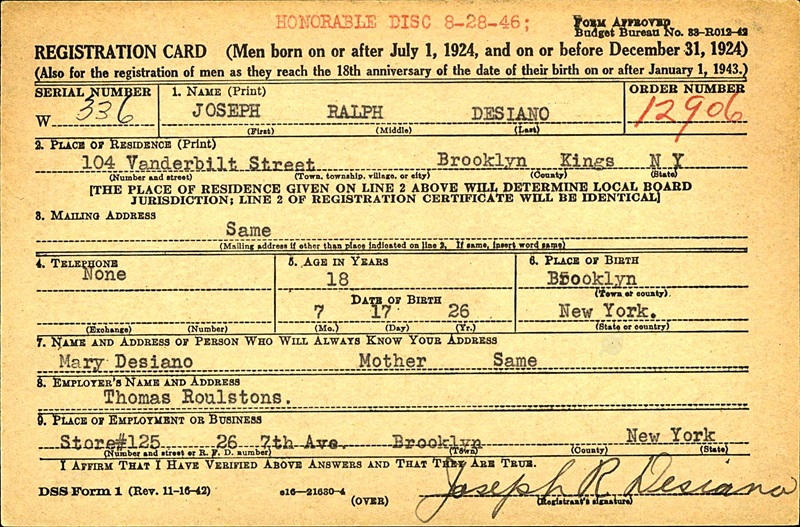 HONORABLE DISC 8-28-46;
FORM APPROVED
Budget Bureau No. 33-R012-42
REGISTRATION CARD (Men born on or after July 1, 1924, and on or before December 31, 1924)
(Also for the registration of men as they reach the 18th anniversary of the date of their birth on or after January 1, 1943.)
SERIAL NUMBER 1. NAME (Print) ORDER NUMBER
W 336 JOSEPH RALPH DESIANO 12906
(First) (Middle) (Last)
2. PLACE OF RESIDENCE (Print)
104 Vanderbilt Street Brooklyn Kings N Y
(Number and street) (Town, township, village, or city) (County) (State)
[THE PLACE OF RESIDENCE GIVEN ON LINE 2 ABOVE WILL DETERMINE LOCAL BOARD
JURISDICTION; LINE 2 OF REGISTRATION CERTIFICATE WILL BE IDENTICAL]
3. MAILING ADDRESS
Same
(Mailing address if other than place indicated on line 2. If same, insert word same)
4. TELEPHONE 5. AGE IN YEARS 6. PLACE OF BIRTH
None 18 Brooklyn
(Town or county)
DATE OF BIRTH
7 17 26 New York.
(Exchange) (Number) (Mo.) (Day) (Yr.) (State or country)
7. NAME AND ADDRESS OF PERSON WHO WILL ALWAYS KNOW YOUR ADDRESS
Mary Desiano Mother Same
8. EMPLOYER'S NAME AND ADDRESS
Thomas Roulstons.
9. PLACE OF EMPLOYMENT OR BUSINESS
Store#125 26 7th Ave. Brooklyn New York
(Number and street or R. F. D. number) (Town) (County) (State)
I AFFIRM THAT I HAVE VERIFIED ABOVE ANSWERS AND THAT THEY ARE TRUE.
Joseph R Desiano
DSS Form 1 (Rev. 11-16-42) e16—21630-4 (OVER) (Registrant's signature)